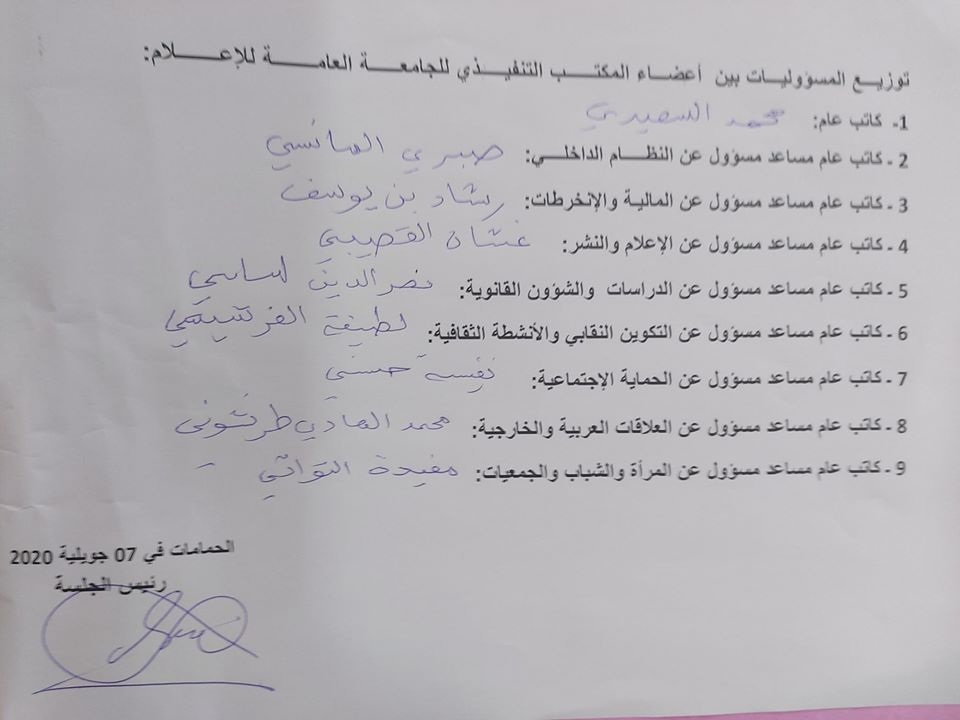 توزيع المسؤوليات بين أعضاء المكتب التنفيذي للجامعة العامة للإعلام:
1- كاتب عام: محمد السعيدي
2 - كاتب عام مساعد مسؤول عن النظام الداخلي: صبري
3 - كاتب عام مساعد مسؤول عن المالية والإنخرطات: رشاد بن يوسف
4 - كاتب عام مساعد مسؤول عن الإعلام والنشر: غسان القصيبي
5 - كاتب عام مساعد مسؤول عن الدراسات والشؤون القانوية: نصر الدين ساسي
6 - كاتب عام مساعد مسؤول عن التكوين النقابي والأنشطة الثقافية: لطيفة الفرشيشي
7 - كاتب عام مساعد مسؤول عن الحماية الإجتماعية: نفيسة حسني
8 - كاتب عام مساعد مسؤول عن العلاقات العربية والخارجية: محمد الهادي طرشوني
9 - كاتب عام مساعد مسؤول عن المرأة والشباب والجمعيات: مفيدة التواتي
الحمامات في 07 جويلية 2020
رئيس الجلسة